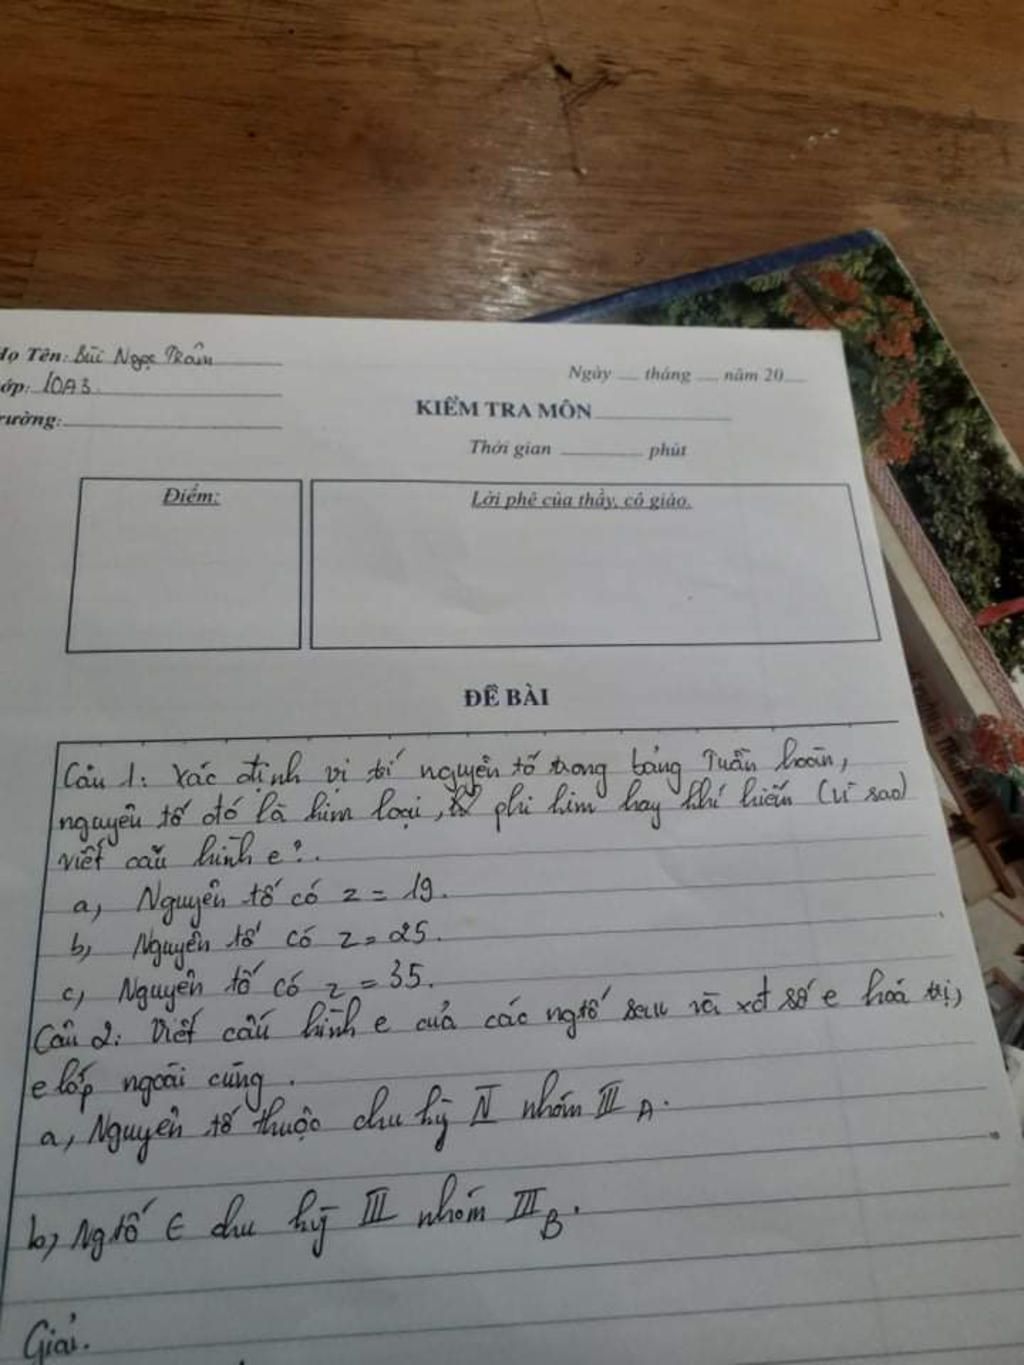 Họ Tên: Bùi Ngọc Trâm
Lớp: 10A3
Trường:
Ngày tháng năm 20
KIỂM TRA MÔN
Thời gian phút
Điểm:
Lời phê của thầy, cô giáo.
ĐỀ BÀI
Câu 1: Xác định vị trí nguyên tố trong bảng Tuần hoàn,
nguyên tố đó là kim loại, phi kim hay khí hiếm (vì sao)
viết cấu hình e?.
a, Nguyên tố có z = 19.
b, Nguyên tố có z = 25.
c, Nguyên tố có z = 35.
Câu 2: Viết cấu hình e của các ngtố sau và xđ số e hoá trị,
e lớp ngoài cùng.
a, Nguyên tố thuộc chu kỳ IV nhóm III A.
b, Ngtố ∈ chu kỳ III nhóm III B.
Giải.